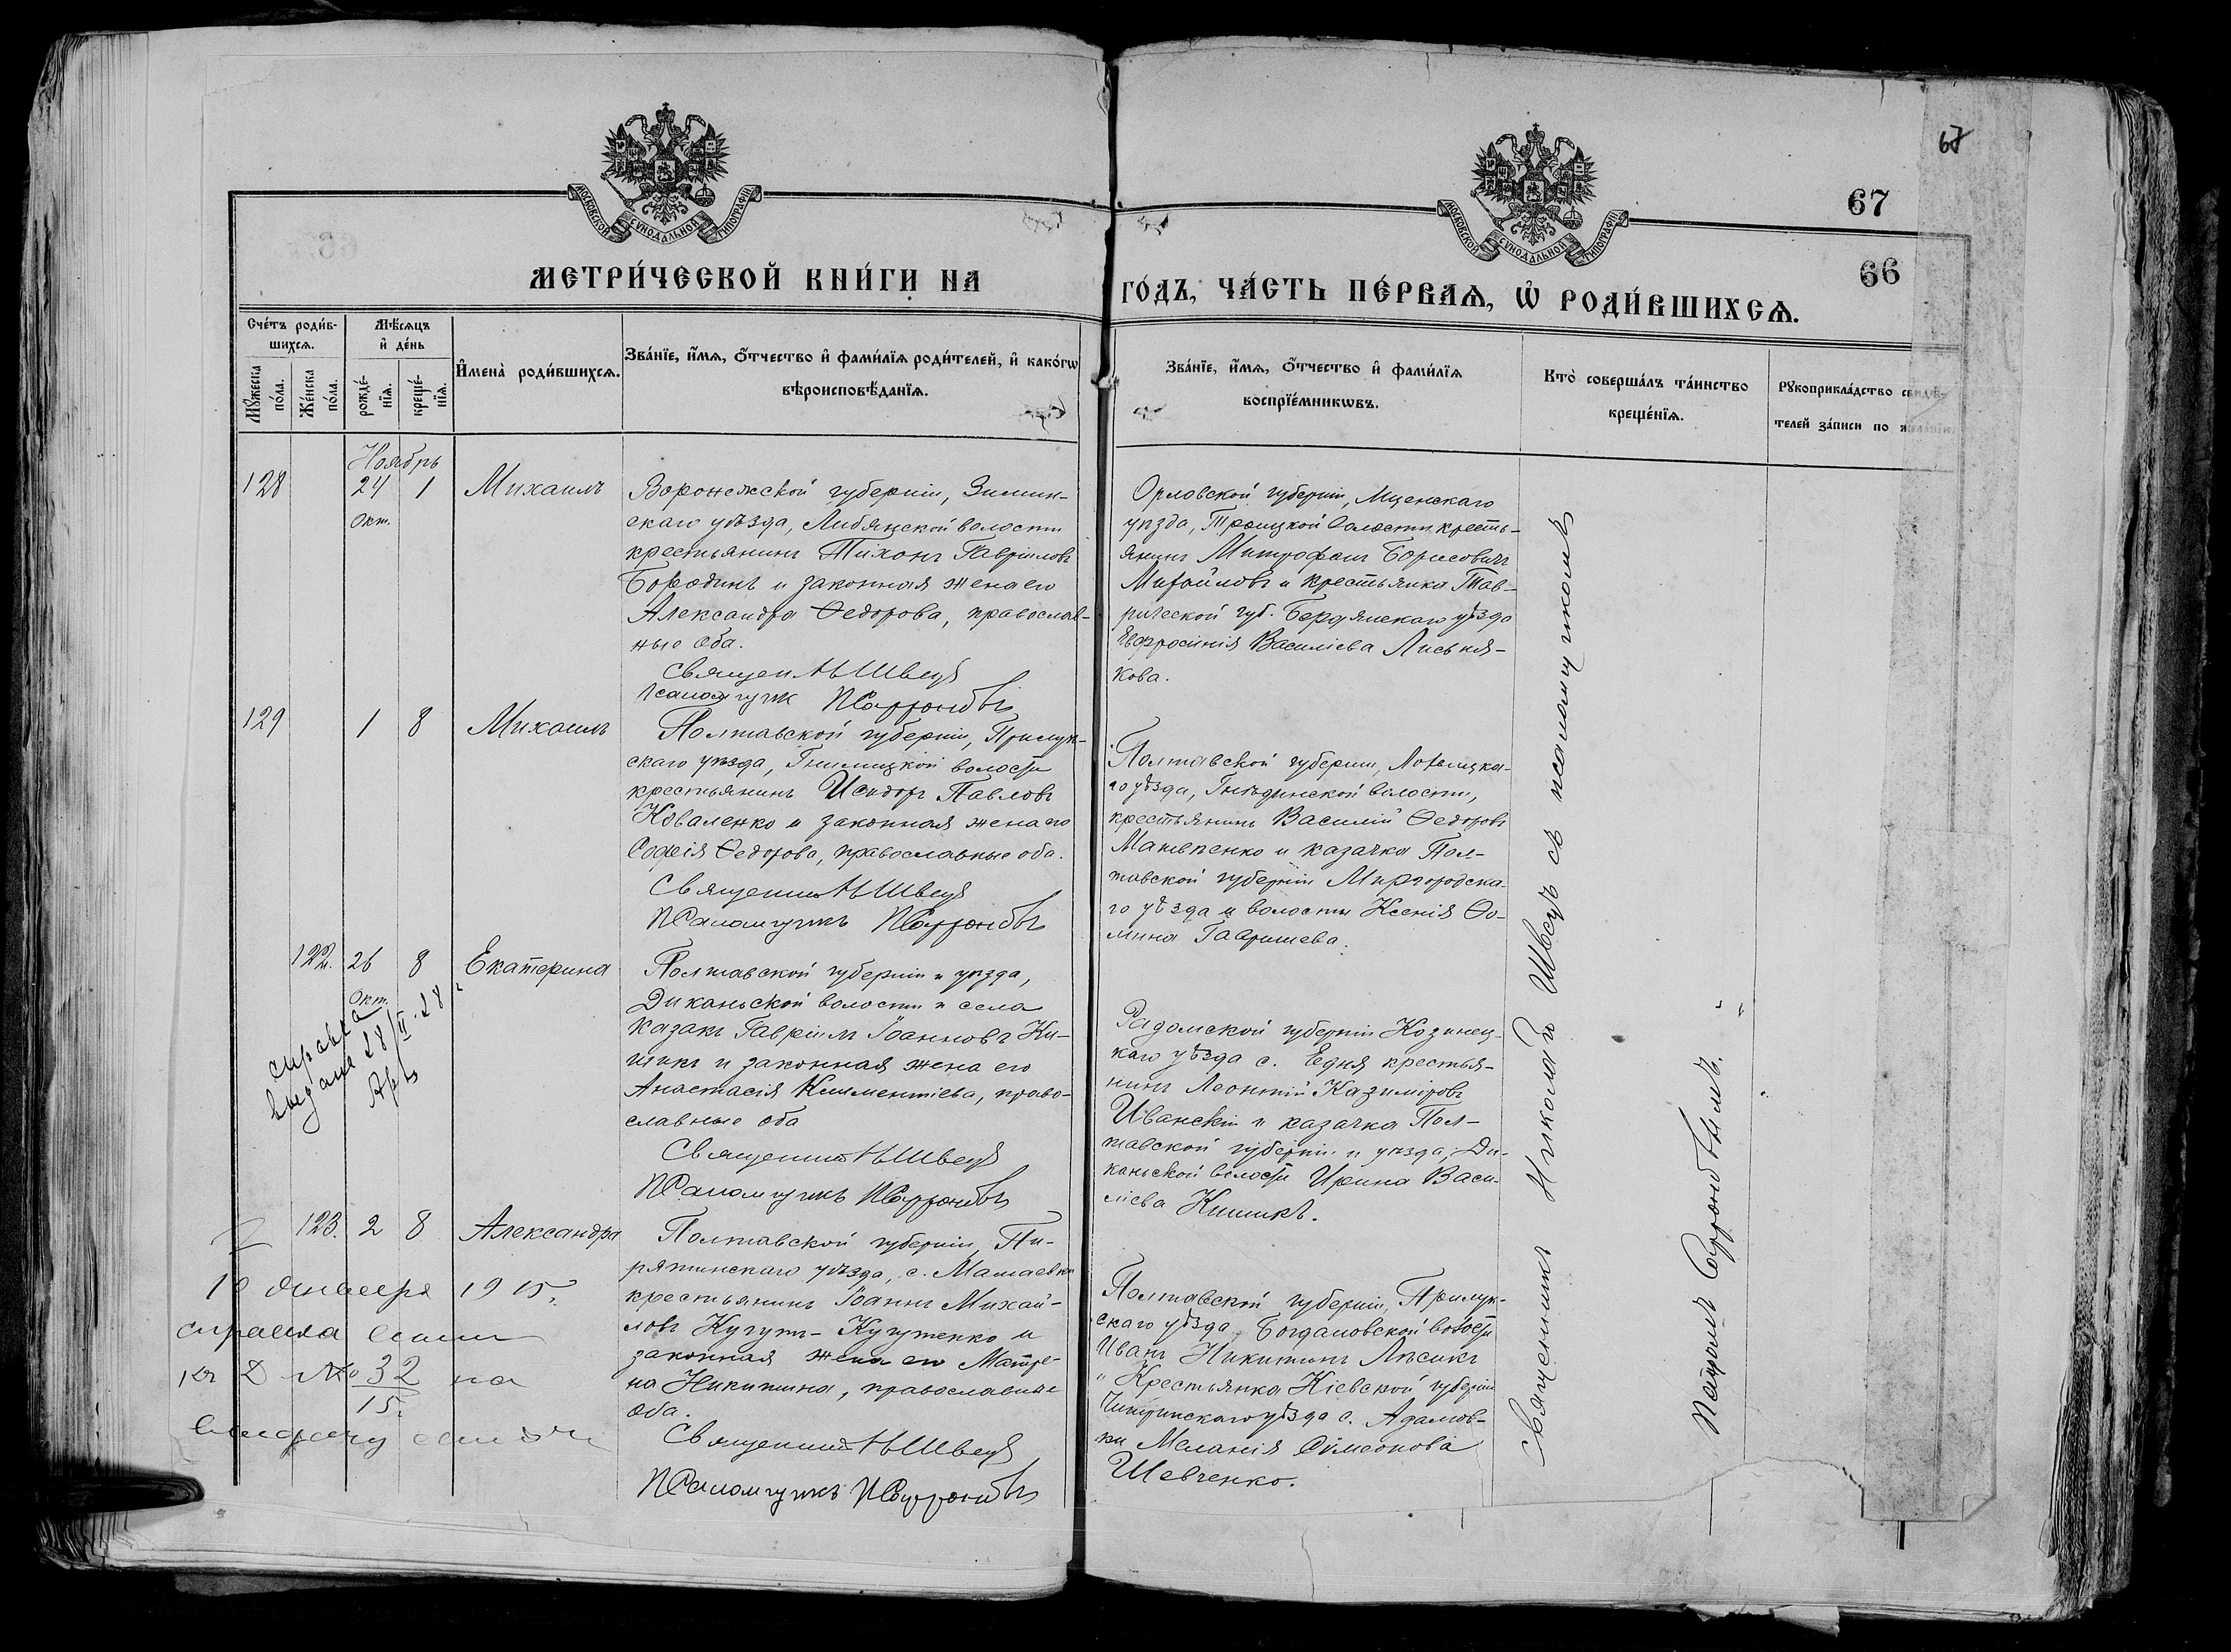 67
67
66
МОСКОВСКОЙ СѴНОДАЛЬНОЙ ТИПОГРАФІИ
МОСКОВСКОЙ СѴНОДАЛЬНОЙ ТИПОГРАФІИ
МЕТРИ́ЧЕСКОЙ КНИ́ГИ НА
ГО́ДЪ, ЧА́СТЬ ПЕ́РВАѦ, Ѡ҆ РОДИ́ВШИХСѦ.
Сче́тъ роди́в-
шихсѧ.
Мꙋ́жеска по́ла.
Же́нска по́ла.
Мѣ́сѧцъ
и҆ де́нь
рожде́-
нїѧ.
креще́-
нїѧ.
И҆мена̀ роди́вшихсѧ.
Зва́нїе, и҆́мѧ, ѻ҆́тчество и҆ фами́лїѧ роди́телей, и҆ како́гѡ
вѣроисповѣ́данїѧ.
Зва́нїе, и҆́мѧ, ѻ҆́тчество и҆ фами́лїѧ
воспрїе́мникѡвъ.
Кто̀ соверша́лъ та́инство
креще́нїѧ.
Рꙋкоприкла́дство свидѣ́-
телей за́писи по жела́нїю.
Ноябрь
128
24 1
Окт.
Михаилъ
Воронежской губерніи, Землян-
скаго уѣзда, волости
крестьянинъ Тихонъ Гавріиловъ
Бородинъ и законная жена его
Александра Ѳедорова, православ-
ные оба.
Священ. Н Швецъ
Псаломщик П Сафоновъ
Орловской губерніи, Мценскаго
уѣзда, Троицкой волости кресть-
янинъ Митрофанъ Борисовичъ
Михайловъ и крестьянка Тав-
рической губ. Бердянскаго уѣзда
Евфросинія Василіева Лисьня-
кова.
129
1 8
Михаилъ
Полтавской губерніи, Прилук-
скаго уѣзда, Гнилицкой волости
крестьянинъ Исидоръ Павловъ
Коваленко и законная жена его
Софія Ѳедорова, православные оба.
Священник Н Швецъ
Псаломщикъ П Сафоновъ
Полтавской губерніи, Лохвицка-
го уѣзда, волости,
крестьянинъ Василій Ѳедоровъ
и казачка Пол-
тавской губерніи Миргородска-
го уѣзда и волости Ксенія Ѳо-
мина Гавришева.
122. 26 8
Окт.
Екатерина
справка
выдана 28/II 28
Полтавской губерніи и уѣзда,
Диканьской волости и села
казакъ Гавріилъ Іоанновъ Ки-
шикъ и законная жена его
Анастасія Климентіева, право-
славные оба
Священник Н Швецъ
Псаломщикъ П Сафоновъ
Радомской губерніи Козинец-
каго уѣзда с. Едня крестья-
нинъ Леонтій Казиміровъ
Иванскій и казачка Пол-
тавской губерніи и уѣзда, Ди-
каньской волости Ирина Васи-
ліева Кишикъ.
123. 2 8
Александра
января 1915.
справка
№ 32 на
15.
Полтавской губерніи, Пи-
рятинскаго уѣзда, с. Мамаевки
крестьянинъ Іоаннъ Михай-
ловъ Кугутъ-Кугутенко и
законная жена его Матре-
на Никитина, православные
оба.
Священник Н Швецъ
Псаломщикъ П Сафоновъ
Полтавской губерніи, Прилук-
скаго уѣзда, Богдановской волости
Иванъ Никитинъ Лѣсикъ
и Крестьянка Кіевской губерніи
Чигиринскаго уѣзда с. Адамов-
ки Меланія Симеонова
Шевченко.
Священникъ Николай Швецъ съ псаломщикомъ
Павломъ Сафоновымъ.